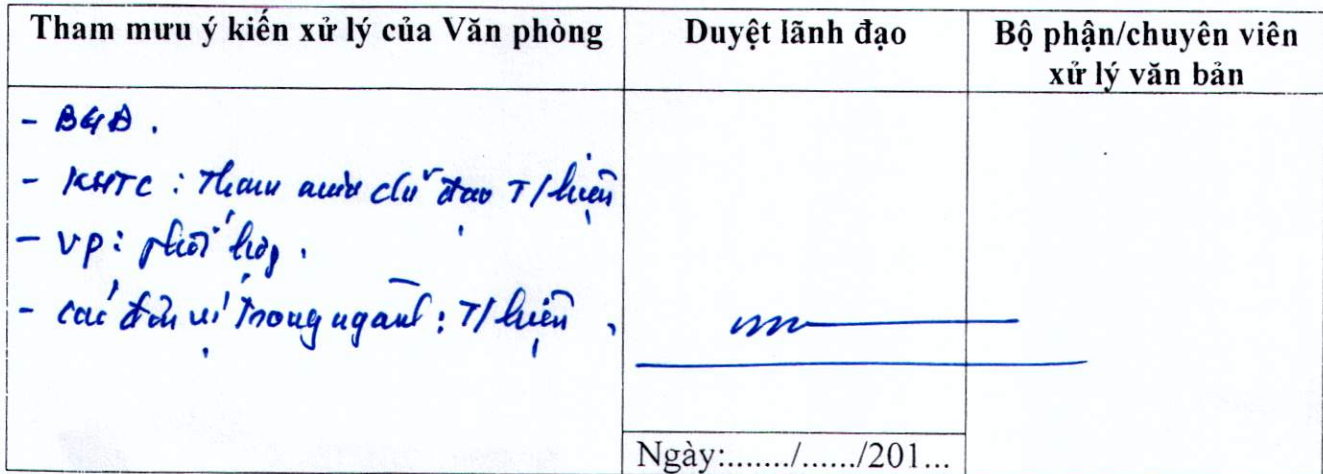 Tham mưu ý kiến xử lý của Văn phòng
Duyệt lãnh đạo
Bộ phận/chuyên viên
xử lý văn bản
- BGĐ.
- KHTC: Tham mưu chỉ đạo T/hiện
- VP: phối hợp.
- các đơn vị trong ngành: T/hiện.
Ngày:......./....../201...